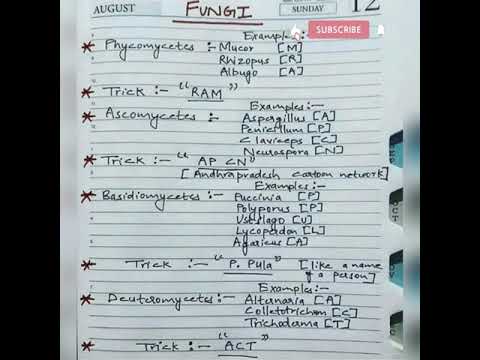 AUGUST
FUNGI
SUNDAY
12
SUBSCRIBE
Examples:-
* Phycomycetes :- Mucor [M]
Rhizopus [R]
Albugo [A]
* Trick :- "RAM"
Examples:-
* Ascomycetes :- Aspergillus [A]
Penicillum [P]
Claviceps [C]
Neurospora [N]
* Trick :- "AP CN"
[Andhrapradesh cartoon network]
Examples:-
* Basidiomycetes :- Puccinia [P]
Polyporus [P]
Ustilago [U]
Lycoperdon [L]
Agaricus [A]
* Trick :- "P. Pula" [like a name of a person]
Examples:-
* Deuteromycetes :- Alternaria [A]
Colletotrichum [C]
Trichoderma [T]
* Trick :- "ACT"